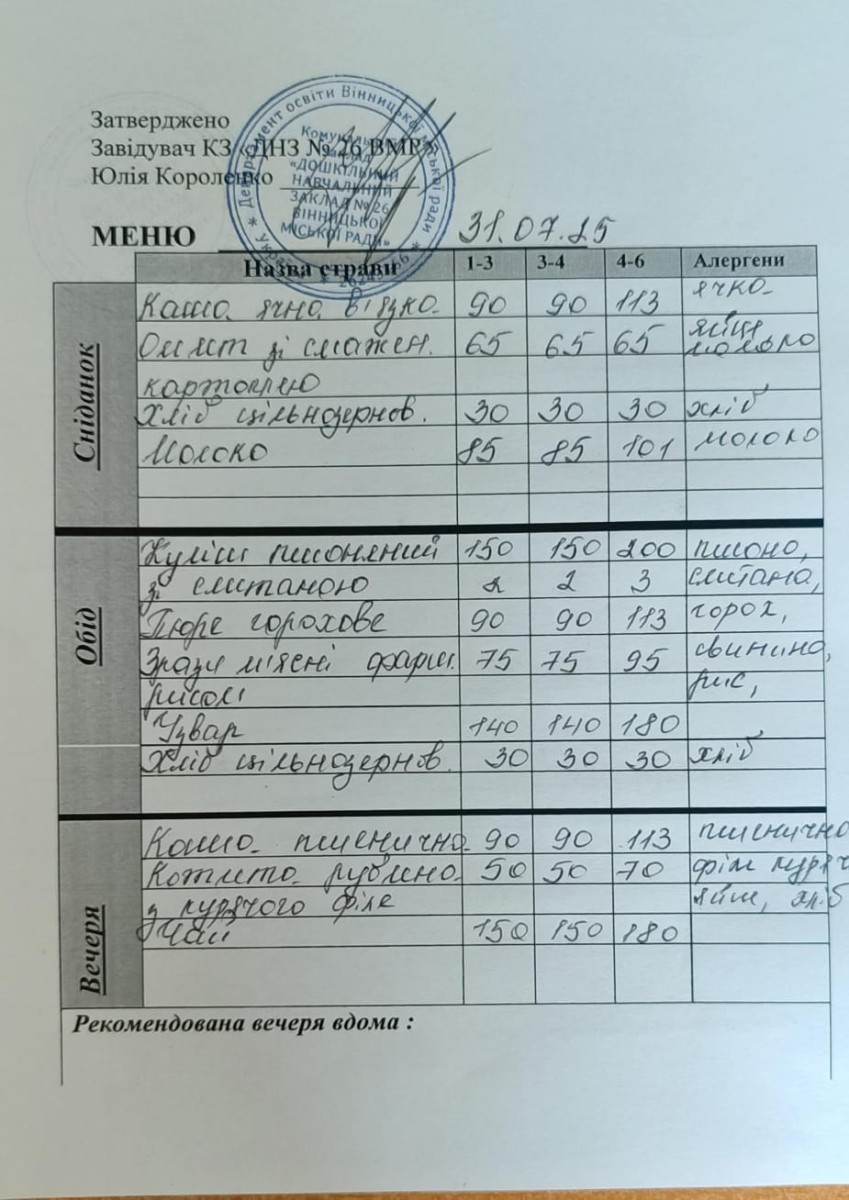 Затверджено
Завідувач КЗ «ДНЗ № 26 ВМР»
Юлія Короленко
Департамент освіти Вінницької міської ради
Комунальний заклад
«ДОШКІЛЬНИЙ
НАВЧАЛЬНИЙ
ЗАКЛАД № 26
ВІННИЦЬКОЇ
МІСЬКОЇ РАДИ»
МЕНЮ 31.07.25
Назва страви 1-3 3-4 4-6 Алергени
Сніданок
Каша ячна в'язка 90 90 113 ячна
Омлет зі смажен. 65 65 65 яйця молоко
картоплею
Хліб цільнозернов. 30 30 30 хліб
Молоко 85 85 101 молоко
Обід
Куліш пшоняний 150 150 200 пшоно,
зі сметаною 2 2 3 сметана,
Пюре горохове 90 90 113 горох,
Зрази м'ясні фарш. 75 75 95 свинина,
рисом рис,
Узвар 140 140 180
Хліб цільнозернов. 30 30 30 хліб
Вечеря
Каша пшенична 90 90 113 пшенична
Котлета рублена 50 50 70 філе куряч
з курячого філе яйце, хліб
Чай 150 150 180
Рекомендована вечеря вдома :